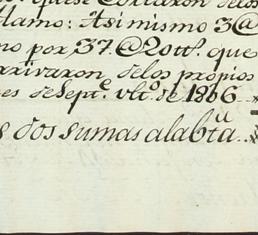 quese Cortaron delos
Alamo: Asi mismo 3@
no por 37.@ 20 ttˢ. que
arrivaron delos propios
es de Septᵉ. vltº. de 1806
s dos sumas alabtᵃ